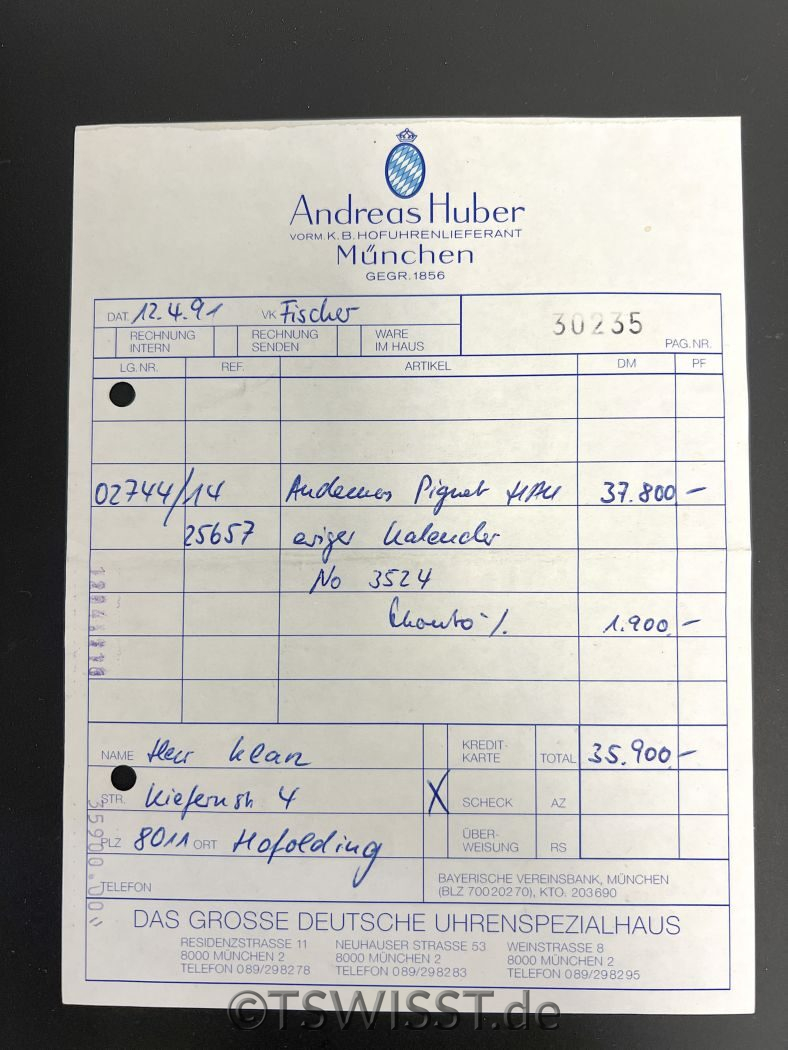 Andreas Huber
VORM. K. B. HOFUHRENLIEFERANT
München
GEGR. 1856
DAT. 12.4.91 VK Fischer
30235
PAG. NR.
RECHNUNG INTERN RECHNUNG SENDEN WARE IM HAUS
LG. NR. REF. ARTIKEL DM PF
02744/14 Audemars Piguet 37.800 —
25657 ewiger Kalender
No 3524
Skonto ./. 1.900 —
NAME Herr Klan KREDIT-KARTE TOTAL 35.900 —
STR. Kiefernstr 4 X SCHECK AZ
PLZ 8011 ORT Hofolding ÜBER-WEISUNG RS
TELEFON
BAYERISCHE VEREINSBANK, MÜNCHEN
(BLZ 700 202 70), KTO. 203 690
35900.00
DAS GROSSE DEUTSCHE UHRENSPEZIALHAUS
RESIDENZSTRASSE 11 NEUHAUSER STRASSE 53 WEINSTRASSE 8
8000 MÜNCHEN 2 8000 MÜNCHEN 2 8000 MÜNCHEN 2
TELEFON 089/298278 TELEFON 089/298283 TELEFON 089/298295
©TSWISST.de